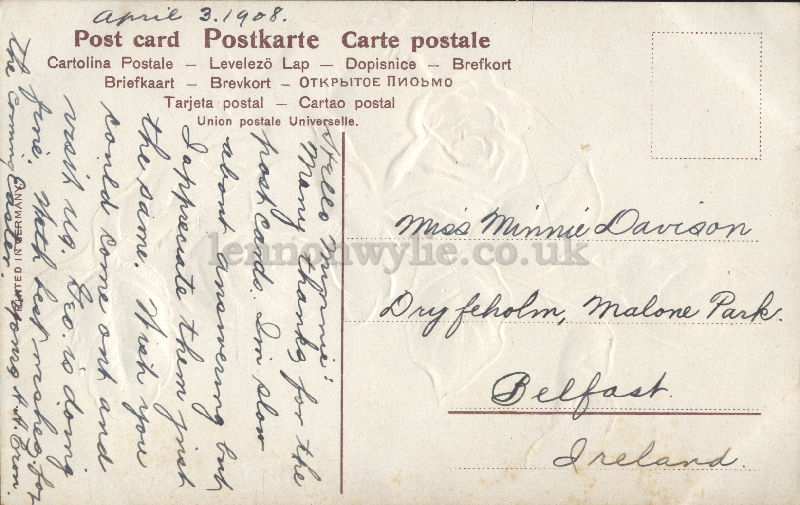 April 3. 1908.
Post card Postkarte Carte postale
Cartolina Postale – Levelező Lap – Dopisnice – Brefkort
Briefkaart – Brevkort – ОТКРЫТОЕ ПИСЬМО
Tarjeta postal – Cartao postal
Union postale Universelle.
Hello Minnie:
Many thanks for the
post cards. I'm slow
about answering but
I appreciate them just
the same. Wish you
could come out and
visit us. Geo. is doing
fine. With best wishes for
the coming Easter. Yours H.H.
PRINTED IN GERMANY
Miss Minnie Davison
Dryfeholm, Malone Park.
Belfast.
Ireland.
lennonwylie.co.uk